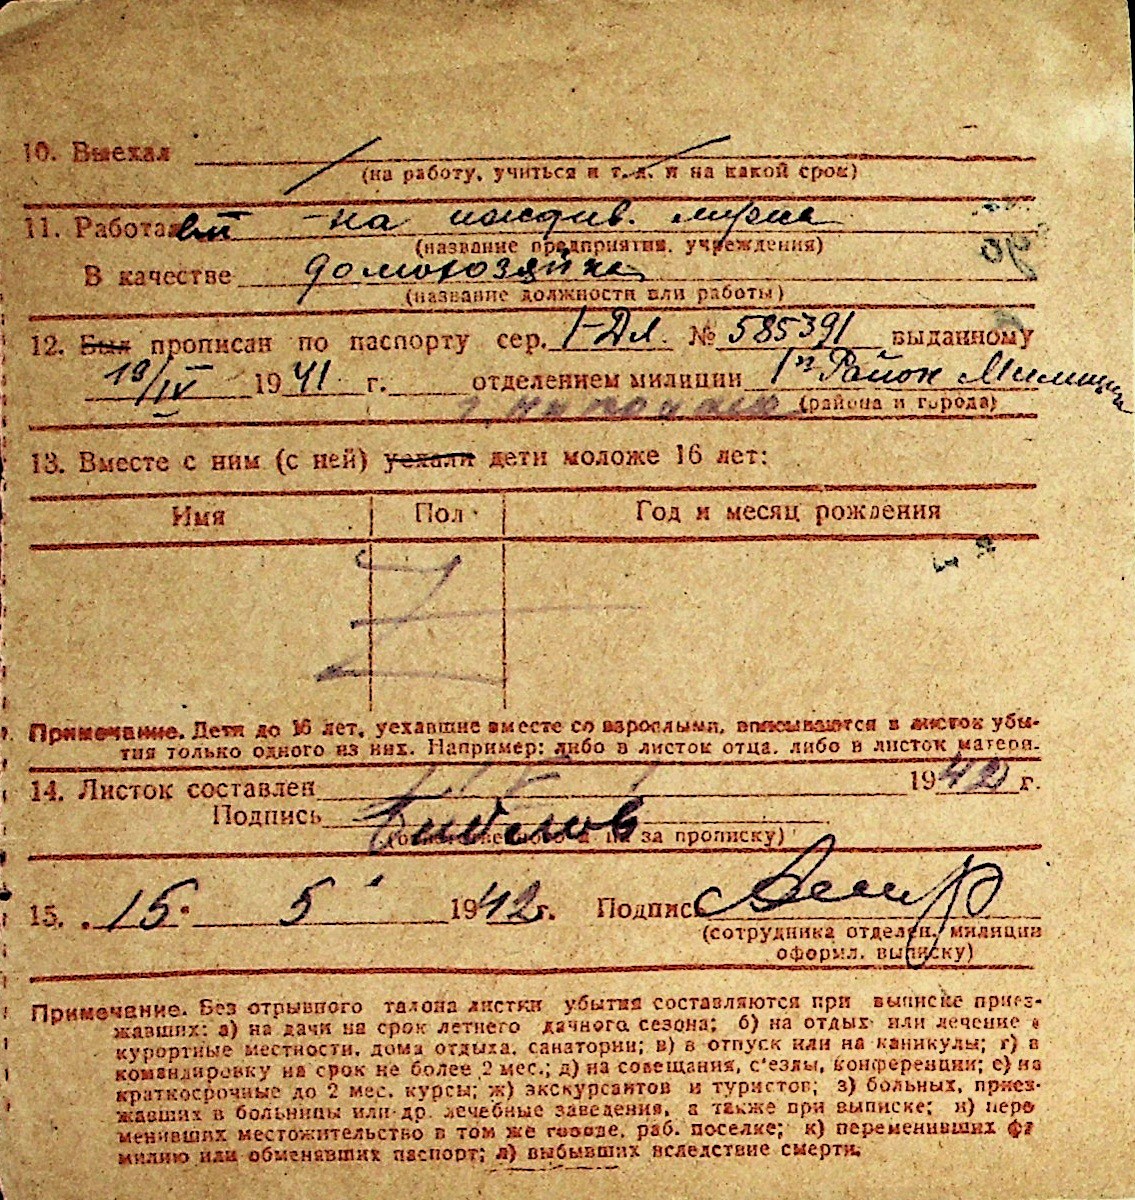 10. Выехал
(на работу, учиться и т. д. и на какой срок)
11. Работал на иждив. мужа
(название предприятия, учреждения)
В качестве домохозяйка
(название должности или работы)
12. Был прописан по паспорту сер. I-Дл № 585391 выданному
19/IV 1941 г. отделением милиции 1м Район Милиции
(района и города)
13. Вместе с ним (с ней) уехали дети моложе 16 лет:
Имя Пол Год и месяц рождения
Z
Примечание. Дети до 16 лет, уехавшие вместе со взрослыми, вписываются в листок убы-
тия только одного из них. Например: либо в листок отца, либо в листок матери.
14. Листок составлен 1942 г.
Подпись
за прописку)
15. 15. 5 1942 г. Подпись
(сотрудника отделен. милиции
оформл. выписку)
Примечание. Без отрывного талона листки убытия составляются при выписке приез-
жавших: а) на дачи на срок летнего дачного сезона; б) на отдых или лечение в
курортные местности, дома отдыха, санатории; в) в отпуск или на каникулы; г) в
командировку на срок не более 2 мес.; д) на совещания, с'езды, конференции; е) на
краткосрочные до 2 мес. курсы; ж) экскурсантов и туристов; з) больных, приез-
жавших в больницы или др. лечебные заведения, а также при выписке; и) пере
менивших местожительство в том же городе, раб. поселке; к) переменивших фа
милию или обменявших паспорт; л) выбывших вследствие смерти.